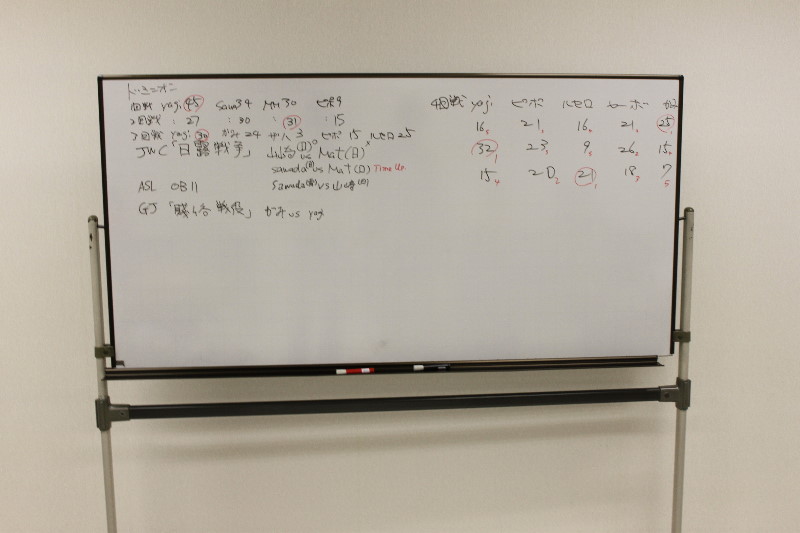 どミニオン
1回戦 yagi 45 Sawa34 MH 30 ピポ9
2回戦 : 27 : 30 : 31 : 15
3回戦 yagi 30 がみ 24 3 ピポ 15 ルセロ 25
JWC「日露戦争」 山崎(日)○ vs Mat(日)×
sawada(露) vs Mat(日) Time Up
ASL OB11 Sawada vs 山崎
GJ「勝 戦役」 がみ vs yagi
4回戦 yagi ピポ ルセロ セーボー がみ
16 21 16 21 25
32 23 9 26 15
15 20 21 18 7